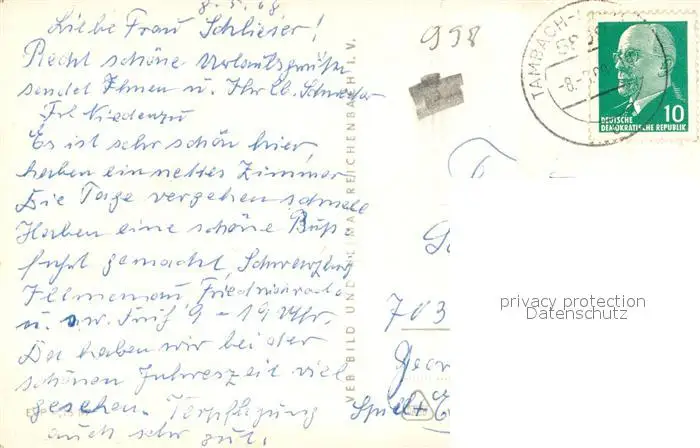 8.5.68
Liebe Frau Schlieser!
Recht schöne Urlaubsgrüße
sendet Ihnen u. Ihr lb. Schwester
Frl. Niedenzu
Es ist sehr schön hier,
haben ein nettes Zimmer
Die Tage vergehen schnell
Haben eine schöne Buß
fahrt gemacht, Schwarzburg
Illmenau, Friedrichroda
u.s.w. früh 9 - 19 Uhr.
Da haben wir bei der
schönen Jahreszeit viel
gesehen. Verpflegung
auch sehr gut.
998
TAMBACH-
DEUTSCHE
DEMOKRATISCHE REPUBLIK
10
VEB BILD UND HEIMAT REICHENBACH I. V.
703
Geor
privacy protection
Datenschutz